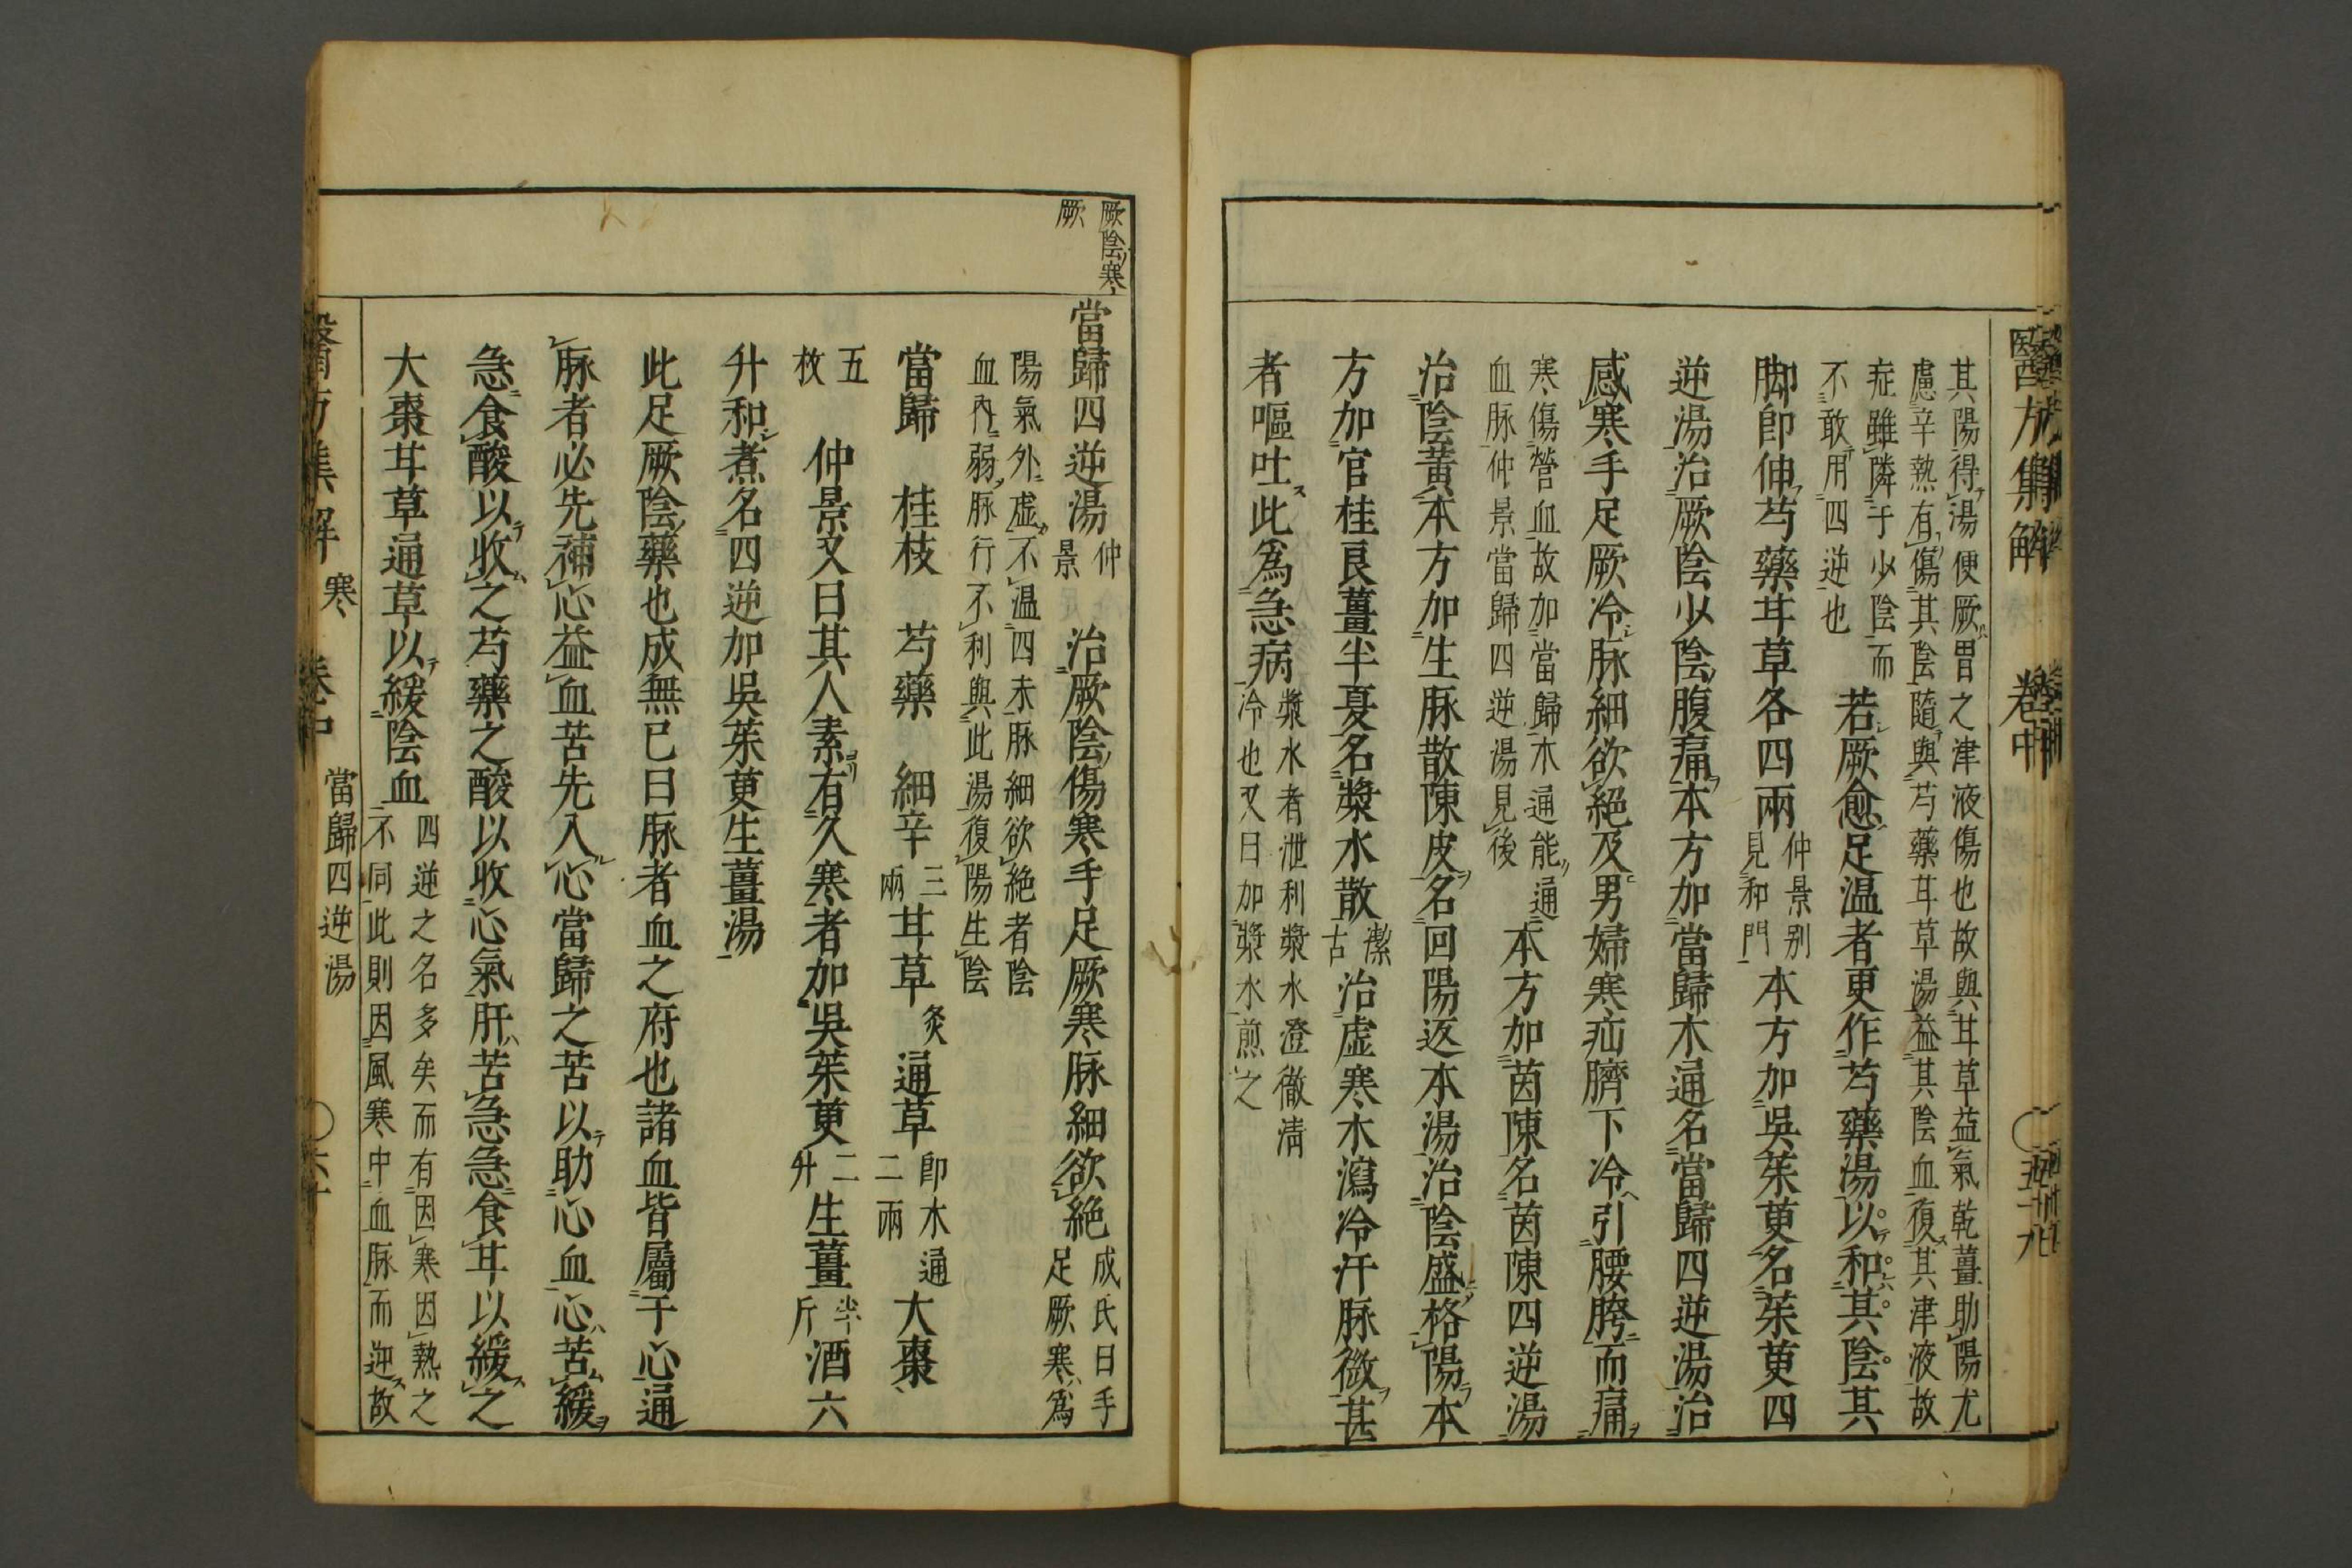 醫方集解 卷中 ○五十九
其陽得湯便厥胃之津液傷也故與甘草益氣乾薑助陽尤
慮辛熱有傷其陰隨與芍藥甘草湯益其陰血復其津液故
症雖隣于少陰而
不敢用四逆也
若厥愈足温者更作芍藥湯以和其陰其
脚即伸芍藥甘草各四兩
仲景别
見和門
本方加吳茱萸名茱萸四
逆湯治厥陰少陰腹痛本方加當歸木通名當歸四逆湯治
感寒手足厥冷脉細欲絕及男婦寒疝臍下冷引腰胯而痛
寒傷營血故加當歸木通能通
血脉仲景當歸四逆湯見後
本方加茵陳名茵陳四逆湯
治陰黃本方加生脉散陳皮名回陽返本湯治陰盛格陽本
方加官桂良薑半夏名漿水散
潔
古
治虛寒水瀉冷汗脉微甚
者嘔吐此為急病
漿水者泄利漿水澄徹清
冷也又曰加漿水煎之
厥陰寒
厥
當歸四逆湯
仲
景
治厥陰傷寒手足厥寒脉細欲絕
成氏曰手
足厥寒為
陽氣外虛不温四末脉細欲絕者陰
血內弱脉行不利與此湯復陽生陰
當歸 桂枝 芍藥 細辛
三
兩
甘草
炙
通草
即木通
二兩
大棗
五
枚
仲景又曰其人素有久寒者加吳茱萸
二
升
生薑
半
斤
酒六
升和煮名四逆加吳茱萸生薑湯
此足厥陰藥也成無已曰脉者血之府也諸血皆屬于心通
脉者必先補心益血苦先入心當歸之苦以助心血心苦緩
急食酸以收之芍藥之酸以收心氣肝苦急急食甘以緩之
大棗甘草通草以緩陰血
四逆之名多矣而有因寒因熱之
不同此則因風寒中血脉而逆故
醫方集解 寒 卷中 當歸四逆湯 ○六十